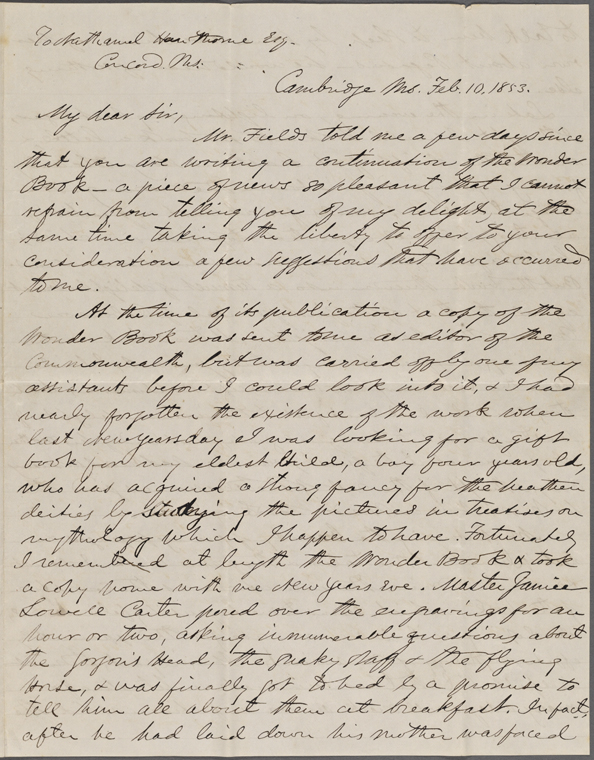 To Nathaniel Hawthorne Esq.
Concord. Ms:
Cambridge Ms. Feb. 10, 1853.
My dear Sir,
Mr. Fields told me a few days since
that you are writing a continuation of the Wonder
Book — a piece of news so pleasant that I cannot
refrain from telling you of my delight, at the
same time taking the liberty to offer to your
consideration a few suggestions that have occurred
to me.
At the time of its publication a copy of the
Wonder Book was sent to me as editor of the
Commonwealth, but was carried off by one of my
assistants before I could look into it, & I had
nearly forgotten the existence of the work when
last New Years day I was looking for a gift
book for my eldest child, a boy four years old,
who has acquired a strong fancy for the heathen
deities by studying the pictures in treatises on
mythology which I happen to have. Fortunately
I remembered at length the Wonder Book & took
a copy home with me New Years Eve. Master James
Lowell Carter pored over the engravings for an
hour or two, asking innumerable questions about
the Gorgon's Head, the snaky staff & the flying
horse, & was finally got to bed by a promise to
tell him all about them at breakfast. In fact,
after he had laid down his mother was forced